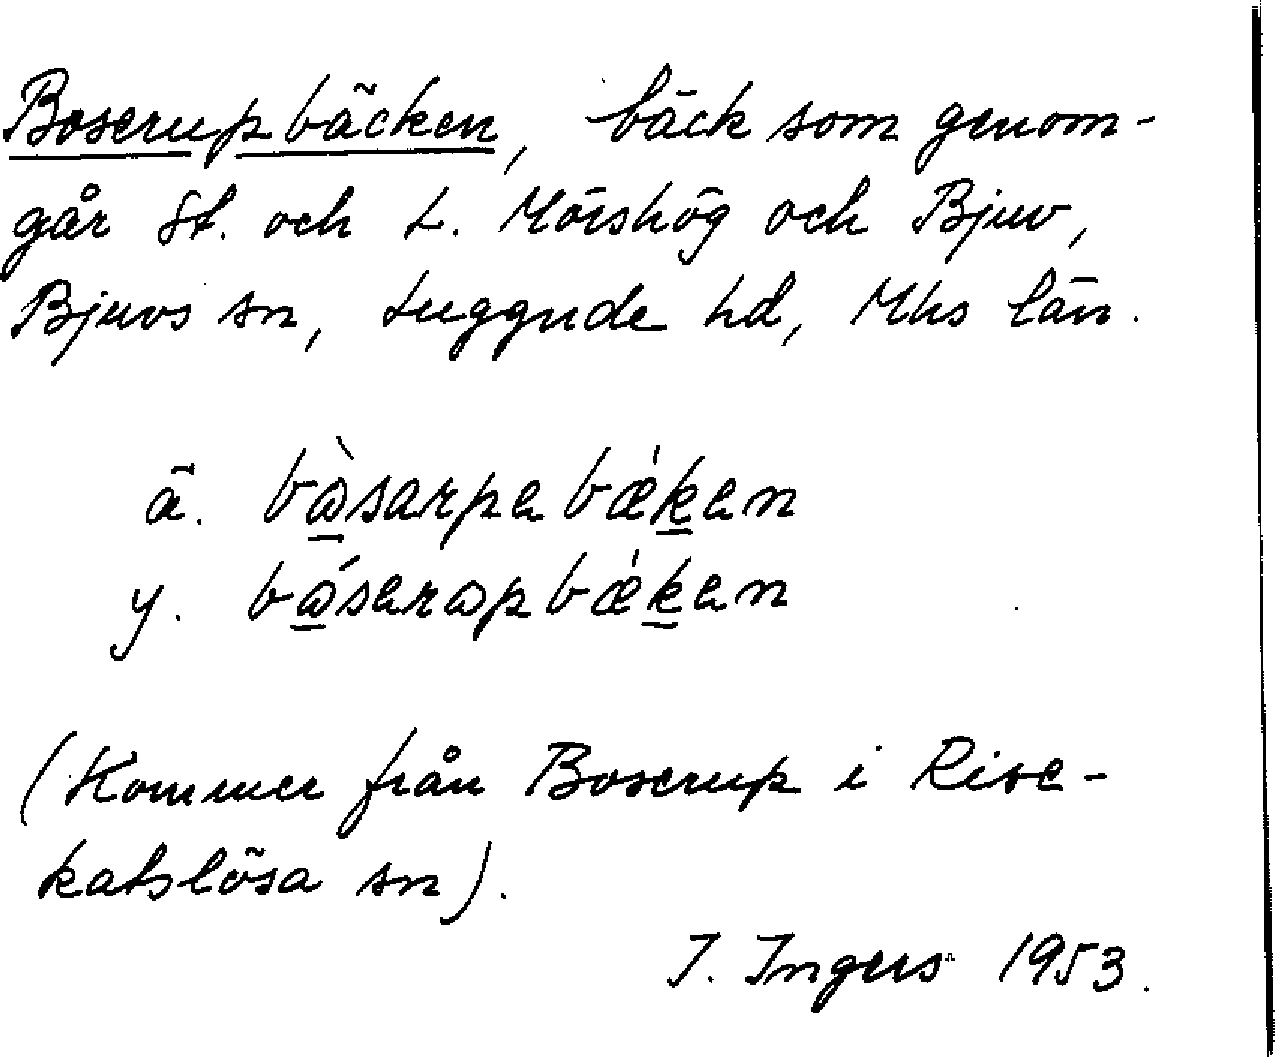 Boserupbäcken, bäck som genom-
går St. och L. Mörshög och Bjuv,
Bjuvs sn, Luggude hd, Mhs län.
ä. bò̠sarpabǽk̠an
y. bó̠sarapbǽk̠an
(Kommer från Boserup i Rise-
katslösa sn).
I. Ingers 1953.